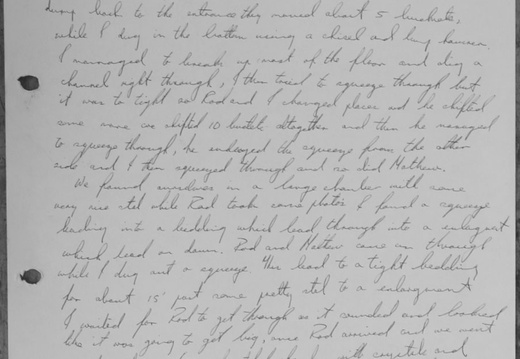 back to the entrance they moved about 5 buckets,
while I dug in the bottom using a chisel and lump hammer.
I mannaged to break up most of the floor and dig a
channel right through, I then tried to squeeze through but
it was to tight so Rod and I changed places and he shifted
some more we shifted 10 buckets altogether and then he managed
to squeeze through, he enlarged the squeeze from the other
side and I then squeezed through and so did Mathew.
We found ourselves in a large chamber with some
very nice stal while Rod took some photos I found a squeeze
leading into a bedding which lead through into a
which lead on down. Rod and came on through
while I dug out a squeeze. This lead to a tight bedding
for about 15' past some pretty stal to a enlargement
I waited for Rod to get through as it sounded and looked
like it was going to get big, once Rod arrived and we went
with and